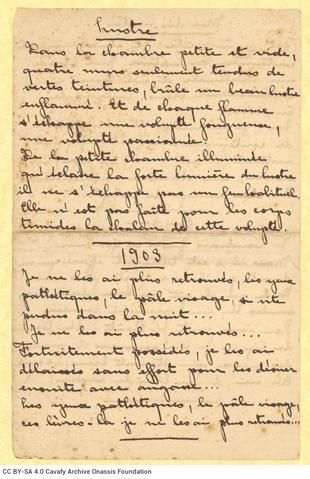 Lustre
Dans la chambre petite et vide,
quatre murs seulement tendus de
vertes teintures, brûle un beau lustre
enflammé. Et de chaque flamme
s'échappe une volupté fougueuse,
une volupté passionnée.
De la petite chambre illuminée
qu'éclaire la forte lumière du lustre
il ne s'échappe pas un feu habituel.
Elle n'est pas faite pour les corps
timides la chaleur de cette volupté.
1903
Je ne les ai plus retrouvés, les yeux
pathétiques, le pâle visage, si vite
perdus dans la nuit...
Je ne les ai plus retrouvés...
Fortuitement possédés, je les ai
délaissés sans effort pour les désirer
ensuite avec angoisse...
Les yeux pathétiques, le pâle visage,
ces lèvres-là je ne les ai plus retrouvés...
CC BY-SA 4.0 Cavafy Archive Onassis Foundation